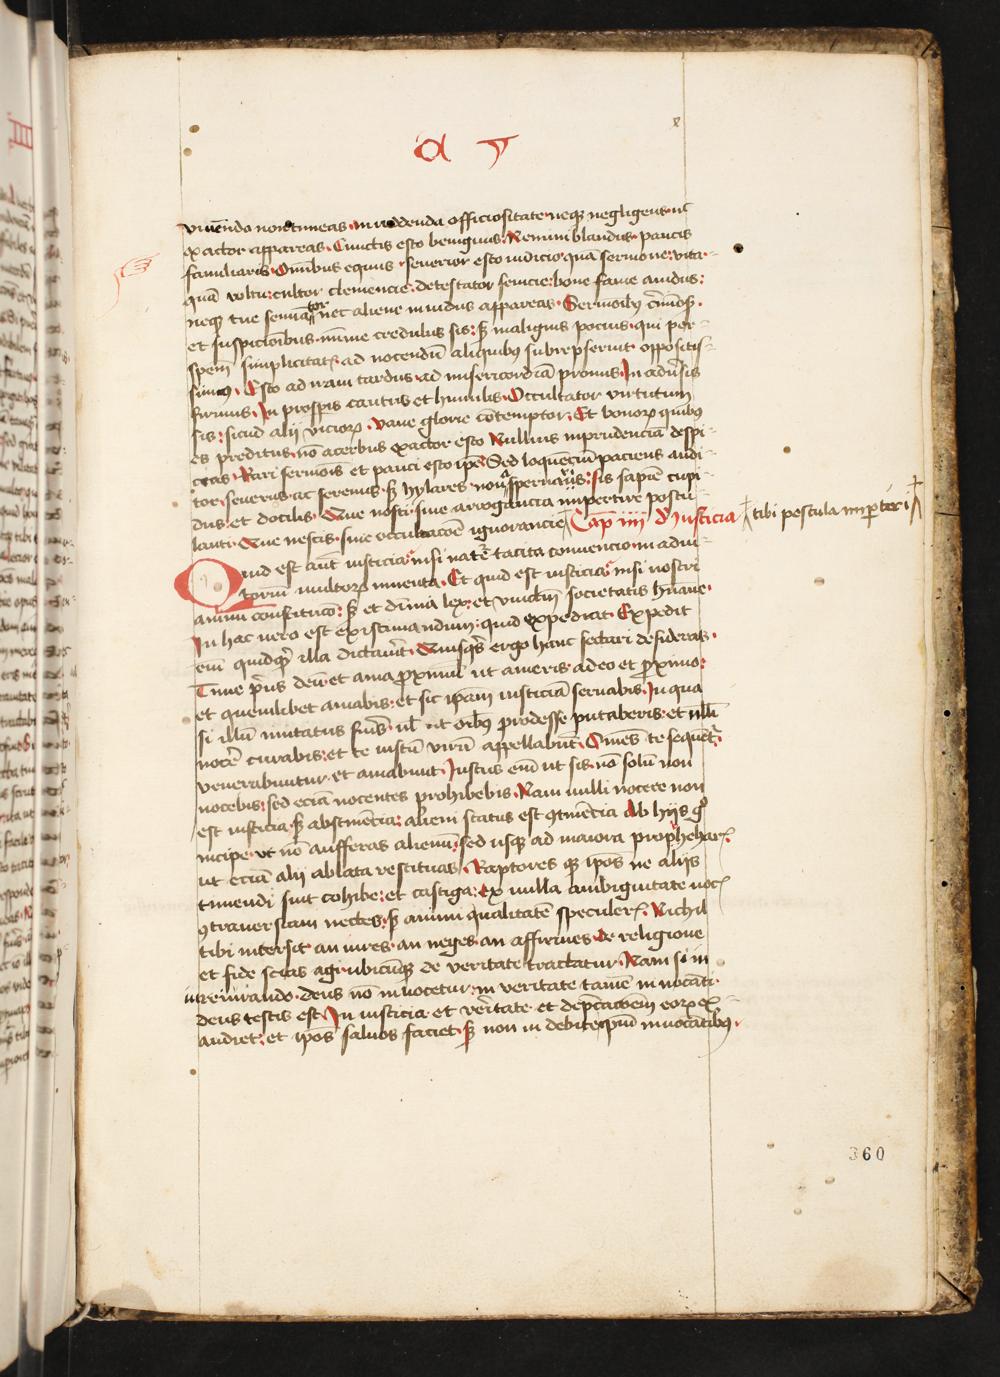 viuendo non timeas · in reddenda officiositate neqꝫ negligens nec
exactor appareas · Cunctis esto benignus · Nemini blandus · paucis
familiaris · Omnibus equus · seuerior esto iudicio quā sermone · vita
quā voltu · cultor clemencie · detestator seuicie · bone fame auidus ·
neqꝫ tue seminator nec aliene inuidus appareas · Sermonibꝰ
et suspicionibus · mīme credulus sis · sꝫ malignis pocius · qui per
spem simplicitatis ad nocendū aliquibꝰ subrepserint oppositis
simꝰ · Esto ad iram tardus · ad misericordiā pronus · In aduersis
firmus · In prosperis cautus et humilis · Occultator virtutum
sis · sicud alij vicioꝝ · vane glorie cōtemptor · Et bonoꝝ quibꝰ
es preditus · nō acerbus exactor esto · Nullius inprudenciā despi
cias · Rari sermonis et pauci esto ipe · Sed loquenciū paciens audi
tor · seuerus · ac serenus · sꝫ hylares non speruaris · sis sapiē cupi
dus · et docilis · Que nosti sine arrogancia impertire postu
lanti · Que nescis sine occultacōe ignorancie Cap iiii de Justicia tibi postula imperteri
Quid est aūt iusticia · nisi nature tacita conuencio in adiu
torium multoꝝ inuenta · Et quid est iusticia · nisi nostri
animi constitucō · sꝫ et diuina lex · et vinclm̄ societatis humane ·
In hac uero est existimandum · quid expediat · Expedit
eni quidqd illa dictauerit · Quisqs ergo hanc sectari desideras ·
Time prius deū · et ama proximū ut ameris · adeo et proximo ·
et quemlibet amabis · et sic ipam iusticiā seruabis · In qua
si illū imitatus fueris · ul ut oibꝰ prodesse putaberis · et nulli
nocere curabis · et te iustū virū appellabunt · Omēs te sequetꝛ
venerabuntur et amabunt · Justus eni ut sis · nō solū non
nocebis · sed eciā nocentes prohibebis · Nam nulli nocere non
est iusticia · sꝫ abstinēcia · alieni status est ꝯtinēcia Ab hijs gͦ
incipe · vt nō aufferas alienū · sed usqꝫ ad maiora
ut eciā alij ablata restituas · Raptores qꝫ ipōs ne alijs
timendi sint cohibe · et castiga · Ex nulla ambiguitate voc
ꝯtrauersiam nectes · sꝫ animi qualitatē speculer · Nichil
tibi intersit an iures · an neges · an affirmes · De religione
et fide scias agi ubicūqꝫ de veritate tractatur · Nam si in
iureiurando · deus nō inuocetur · in veritate tamē in uocati
deus testis est · In iusticia et veritate et depcacoem eoꝝ ex
audiet · et ipos saluos faciet · sꝫ non in debite ipm inuocātibꝰ ·
360